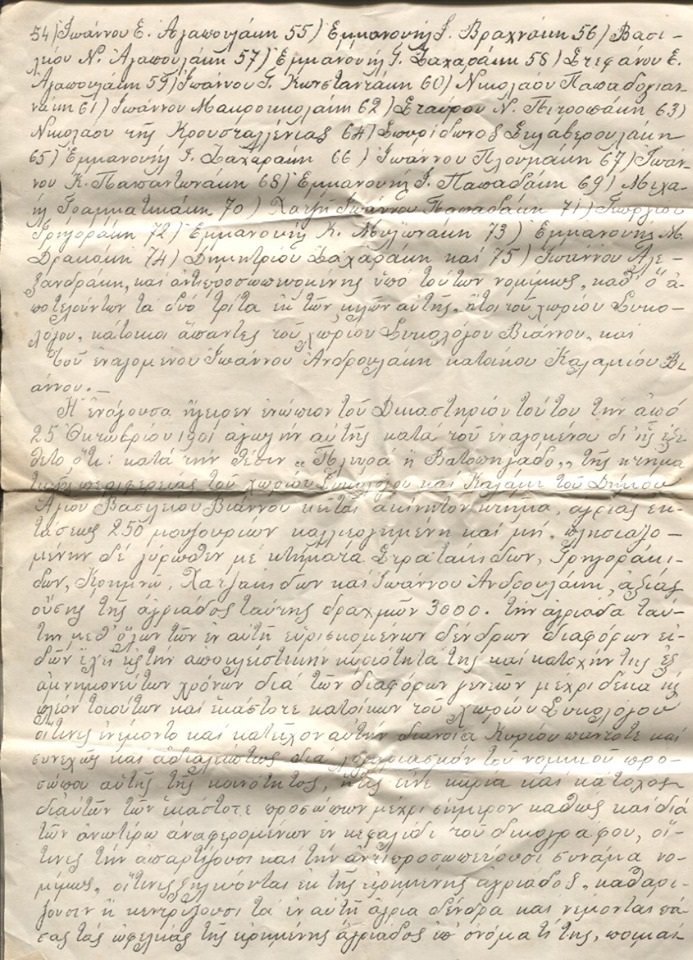 54) Ἰωάννου Ε. Ἀγαπουλάκη 55) Ἐμμανουὴλ Ι. Βραχνάκη 56) Βασι-
λείου Ν. Ἀγαπουλάκη 57) Ἐμμανουὴλ Γ. Ζαχαράκη 58) Στεφάνου Ε.
Ἀγαπουλάκη 59) Ἰωάννου Γ. Κωνσταντάκη 60) Νικολάου Παπαδογιαν-
νάκη 61) Ἰωάννου Μακρονικολάκη 62) Σταύρου Ν. Πιτροπάκη 63)
Νικολάου τῆς Κρουσταλλένιας 64) Σπυρίδωνος
65) Ἐμμανουὴλ Ι. Ζαχαράκη 66) Ἰωάννου Πλουμάκη 67) Ἰωάν-
νου Κ. Παπαντωνάκη 68) Ἐμμανουὴλ Ι. Παπαδάκη 69) Μιχα-
ὴλ Γραμματικάκη 70) Χατζῆ Ἰωάννου Παπαδάκη 71) Γεωργίου
Γρηγοράκη 72) Ἐμμανουὴλ Κ. Μυλωνάκη 73) Ἐμμανουὴλ Μ.
Δρακάκη 74) Δημητρίου Ζαχαράκη καὶ 75) Ἰωάννου Ἀλε-
ξανδράκη, καὶ ἀντιπροσωπευομένης ὑπὸ τούτων νομίμως, καθ' ὃ ἀ-
ποτελούντων τὰ δύο τρίτα ἐκ τῶν μελῶν αὐτῆς, ἤτοι τοῦ χωρίου Συκο-
λόγου, κάτοικοι ἅπαντες τοῦ χωρίου Συκολόγου Βιάννου, καὶ
τοῦ ἐναγομένου Ἰωάννου Ἀνδρουλάκη κατοίκου Καλαμίου Βι-
άννου. —
Ἡ ἐνάγουσα ἤγειρεν ἐνώπιον τοῦ Δικαστηρίου τούτου τὴν ἀπὸ
25 Ὀκτωβρίου 1901 ἀγωγὴν αὐτῆς κατὰ τοῦ ἐναγομένου δι' ἧς ἐξέ-
θετο ὅτι: κατὰ τὴν θέσιν „Πλευρὰ ἢ Βατοπηγάδο„ τῆς κτημα-
τικῆς περιφερείας τοῦ χωρίου Συκολόγου καὶ Καλάμι τοῦ Δήμου
Ἁγίου Βασιλείου Βιάννου κεῖται ἀκίνητον κτῆμα, ἀγριὰς ἐκ-
τάσεως 250 μουζουρίων καλλιεργημένη καὶ μή, πλησιαζο-
μένην δὲ γύρωθεν μὲ κτήματα Στρατακίδων, Γρηγοράκι-
δων, Κρημνῷ, Χατζακίδων καὶ Ἰωάννου Ἀνδρουλάκη, ἀξίας
οὔσης τῆς ἀγριάδος ταύτης δραχμῶν 3000. τὴν ἀγριάδα ταύ-
την μεθ' ὅλων τῶν ἐν αὐτῇ εὑρισκομένων δένδρων διαφόρων εἰ-
δῶν ἔχει εἰς τὴν ἀποκλειστικὴν κυριότητά της καὶ κατοχήν της ἐξ
ἀμνημονεύτων χρόνων διὰ τῶν διαφόρων γενεῶν μέχρι δέκα
πλέον τοιούτων καὶ ἑκάστοτε κατοίκων τοῦ χωρίου Συκολόγου
οἵτινες ἐνέμοντο καὶ κατεῖχον αὐτὴν διανοίᾳ Κυρίου πάντοτε καὶ
συνεχῶς καὶ ἀδιαλείπτως διὰ λογαριασμὸν τοῦ νομικοῦ προ-
σώπου αὐτῆς τῆς κοινότητος, ἥτις εἶνε κυρία καὶ κάτοχος
δι' αὐτῶν τῶν ἑκάστοτε προσώπων μέχρι σήμερον καθὼς καὶ διὰ
τῶν ἀνωτέρω ἀναφερομένων ἐν κεφαλίδι τοῦ δικογράφου, οἵ-
τινες τὴν ἀπαρτίζουσι καὶ τὴν ἀντιπροσωπεύουσι συνάμα νο-
μίμως, οἵτινες ξυλεύονται ἐκ τῆς εἰρημένης ἀγριάδος, καθαρί-
ζουσιν ἢ κεντρίζουσι τὰ ἐν αὐτῇ ἄγρια δένδρα καὶ νέμονται πά-
σας τὰς ὠφελείας τῆς εἰρημένης ἀγριάδος ἐπ' ὀνόματί της, ποιμαι-